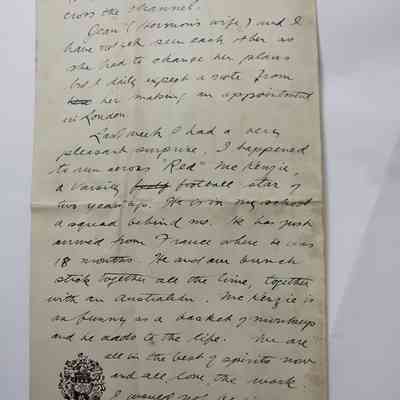 cross the channel.
Dean (Harmon's wife) and I
have not yet seen each other as
she had to change her plans
but I daily expect a note from
her making an appointment
in London.
Last week I had a very
pleasant surprise. I happened
to run across "Red" McKenzie,
a Varsity football star of
two years ago. He is in my school
a squad behind me. He has just
arrived from France where he was
18 months. He and our bunch
stick together all the time, together
with an Australian. McKenzie is
as funny as a basket of monkeys
and he adds to the life. We are
all in the best of spirits now
and all love the work.
I would not